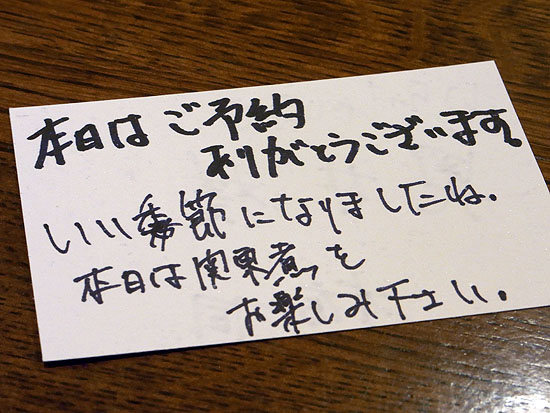 本日はご予約
ありがとうございます。
いい季節になりましたね。
本日は関東煮を
お楽しみ下さい。